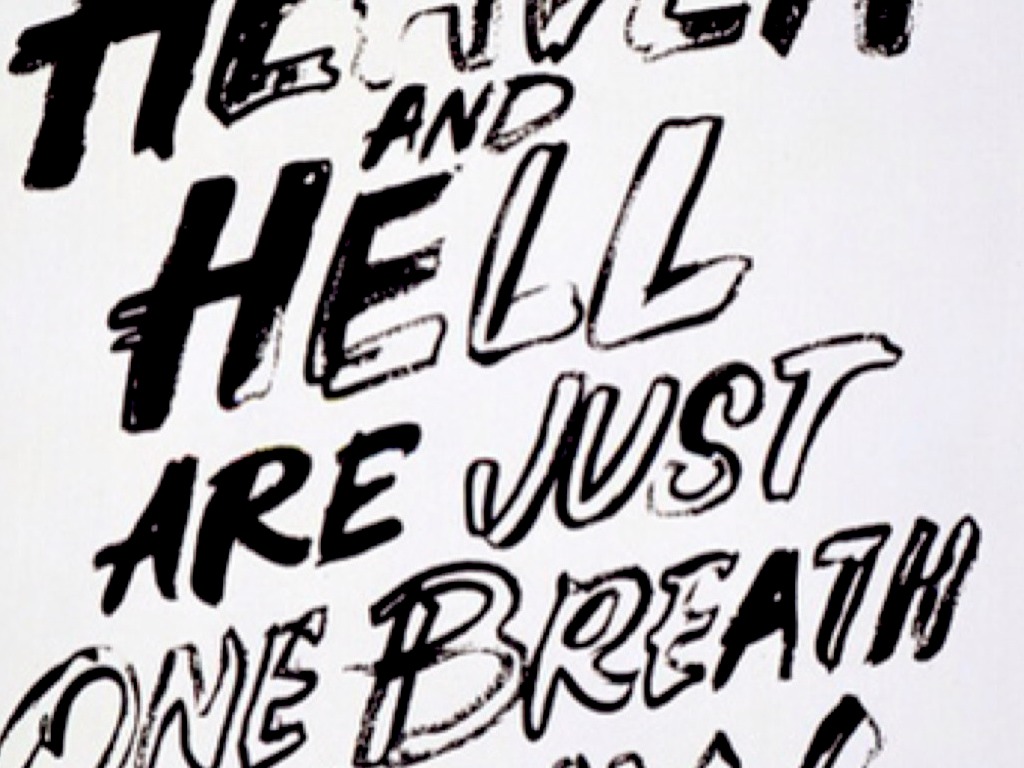 HEAVEN
AND
HELL
ARE JUST
ONE BREATH